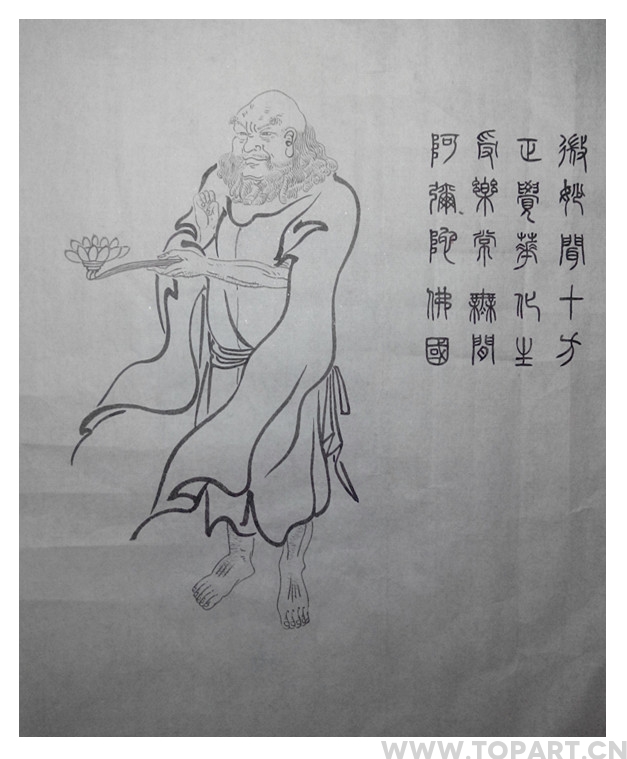 微妙聞十方
正覺華化生
受樂常無間
阿彌陀佛國
WWW.TOPART.CN